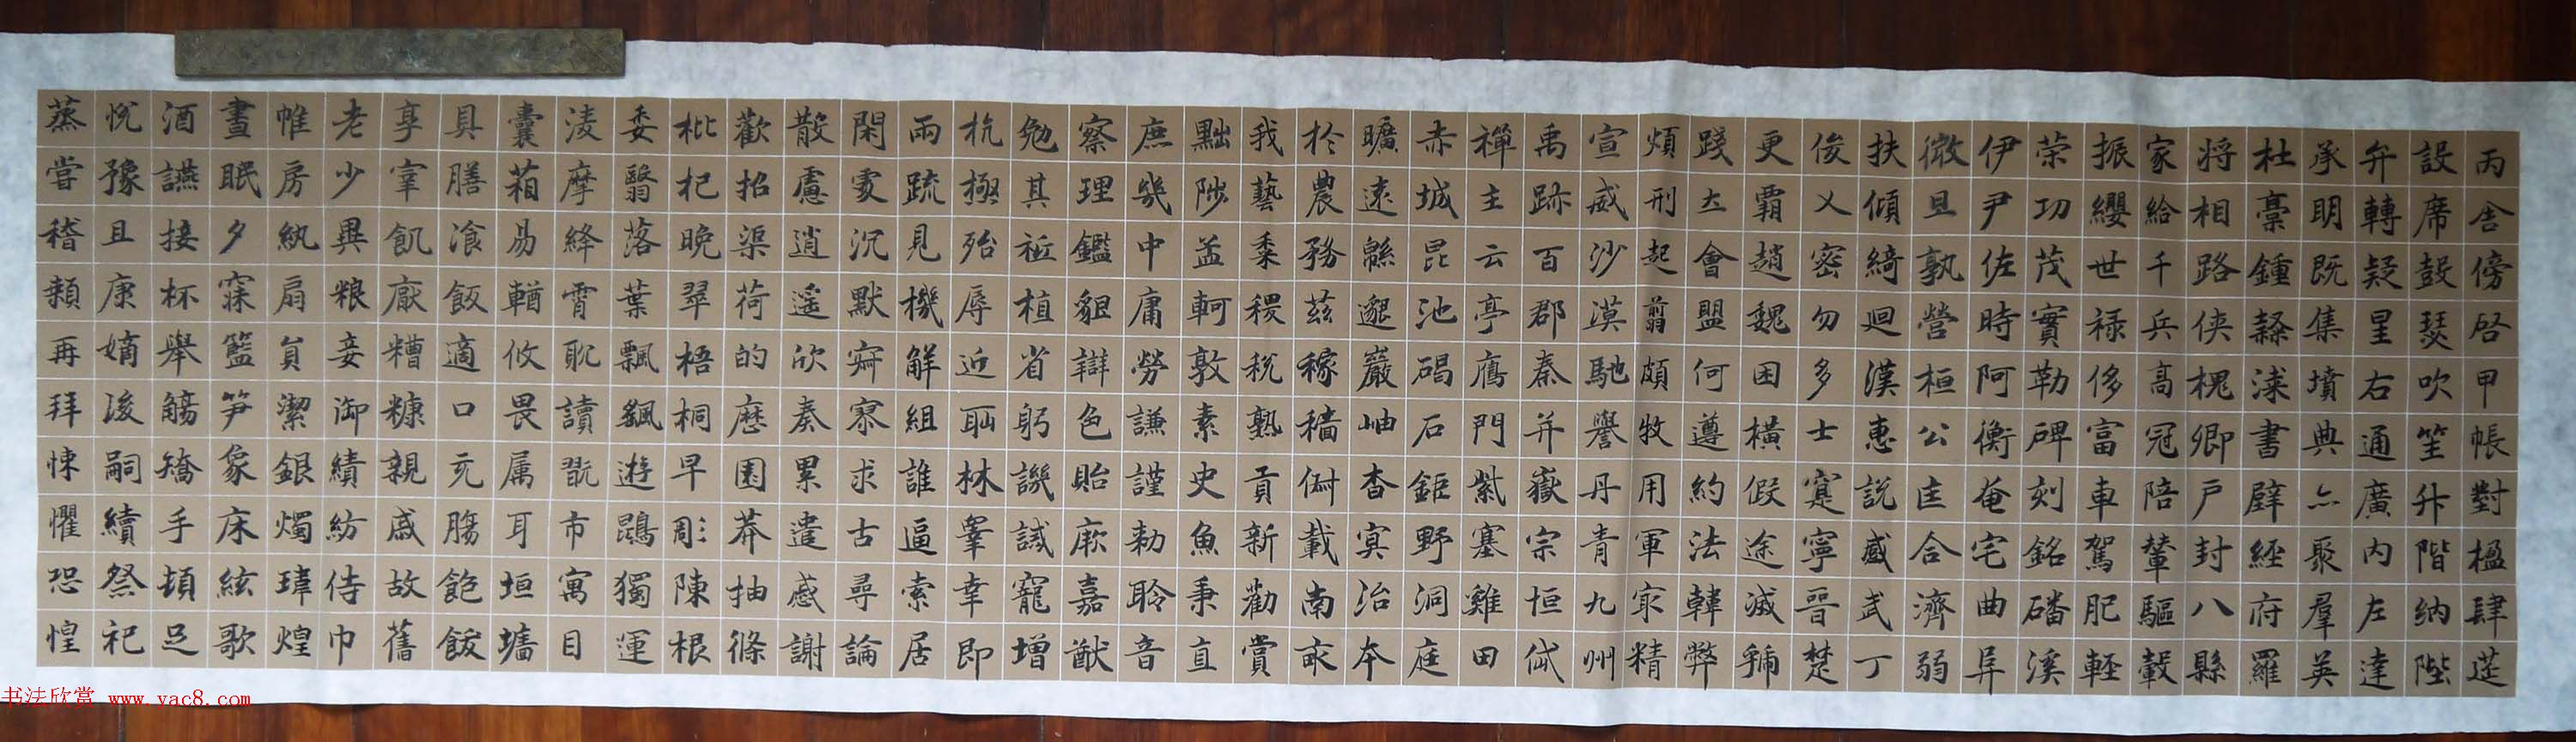 丙舍傍啓甲帳對楹肆筵
設席鼓瑟吹笙升階納陛
弁轉疑星右通廣內左達
承明既集墳典亦聚羣英
杜稾鍾隸漆書壁經府羅
將相路俠槐卿戶封八縣
家給千兵高冠陪輦驅轂
振纓世禄侈富車駕肥輕
策功茂實勒碑刻銘磻溪
伊尹佐時阿衡奄宅曲阜
微旦孰營桓公匡合濟弱
扶傾綺迴漢惠說感武丁
俊乂密勿多士寔寧晉楚
更霸趙魏困橫假途滅虢
踐土會盟何遵約法韓弊
煩刑起翦頗牧用軍最精
宣威沙漠馳譽丹青九州
禹跡百郡秦并嶽宗恒岱
禪主云亭鴈門紫塞雞田
赤城昆池碣石鉅野洞庭
曠遠緜邈巖岫杳冥治本
於農務茲稼穡俶載南畝
我藝黍稷稅熟貢新勸賞
黜陟孟軻敦素史魚秉直
庶幾中庸勞謙謹勑聆音
察理鑑貌辯色貽厥嘉猷
勉其祗植省躬譏誡寵增
抗極殆辱近恥林皋幸即
兩疏見機解組誰逼索居
閑處沉默寂寥求古尋論
散慮逍遙欣奏累遣慼謝
歡招渠荷的歷園莽抽條
枇杷晚翠梧桐早彫陳根
委翳落葉飄颻遊鵾獨運
凌摩絳霄耽讀翫市寓目
囊箱易輶攸畏属耳垣墻
具膳飡飯適口充腸飽飫
享宰飢厭糟糠親戚故舊
老少異粮妾御績紡侍巾
帷房紈扇員潔銀燭瑋煌
晝眠夕寐籃笋象床絃歌
酒讌接杯舉觴矯手頓足
悅豫且康嫡後嗣續祭祀
蒸嘗稽顙再拜悚懼恐惶
书法欣赏 www.yac8.com